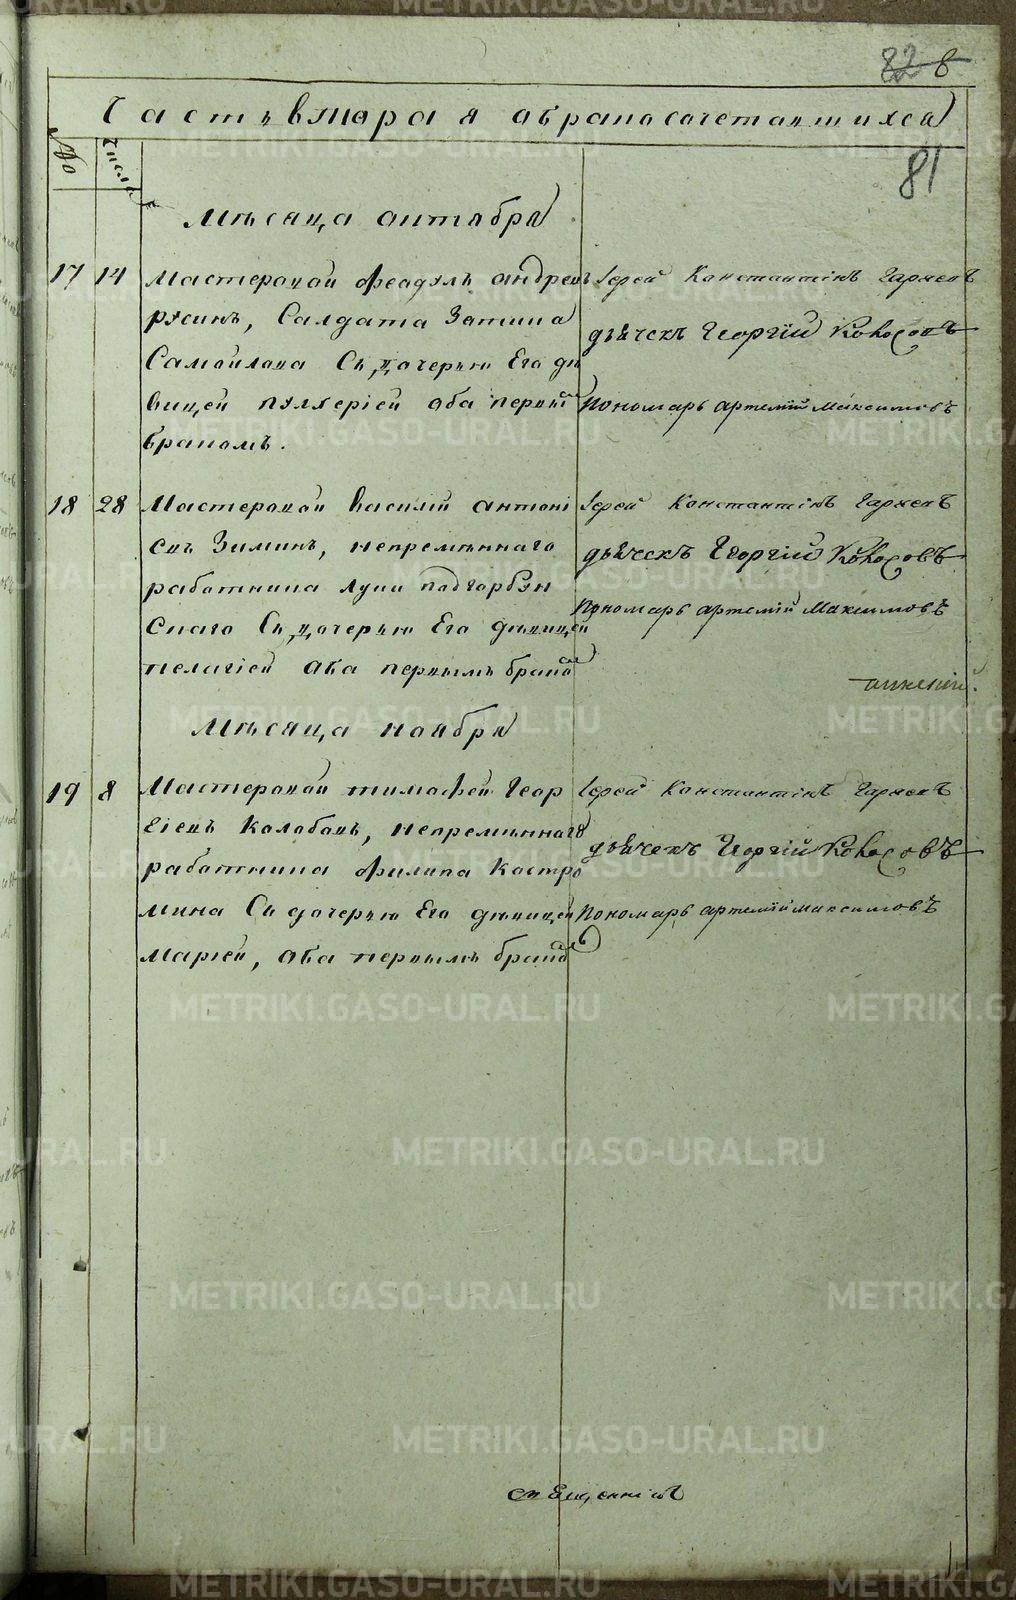 82 8
Часть вторая абракосочетавшихся
81
№
Числа
Мѣсяца октября
17 14 Мастеровой Феодулъ Андреевъ
Русинъ, Салдата Затипа
Самойлова Съ дочерью Его дѣ
вицей Пулхеріей оба первымъ
бракомъ.
Іерей Константинъ Гаряевъ
дьячекъ Георгій Кокосовъ
Пономарь Артемій Максимовъ
18 28 Мастеровой Василій Антоні
евъ Зиминъ, непремѣннаго
работника Луки Подгорбун
скаго Съ дочерью Его дѣвицей
Пелагіей оба первымъ бракомъ
Іерей Константинъ Гаряевъ
дьячекъ Георгій Кокосовъ
Пономарь Артемій Максимовъ
Мѣсяца ноября
19 8 Мастеровой Тимофей Геор
гіевъ Колобовъ, непремѣннаго
работника Филипа Костро
мина Съ дочерью Его дѣвицей
Маріей, оба первымъ бракомъ
Іерей Константинъ Гаряевъ
дьячекъ Георгій Кокосовъ
Пономарь Артемій Максимовъ
священникъ
METRIKI.GASO-URAL.RU